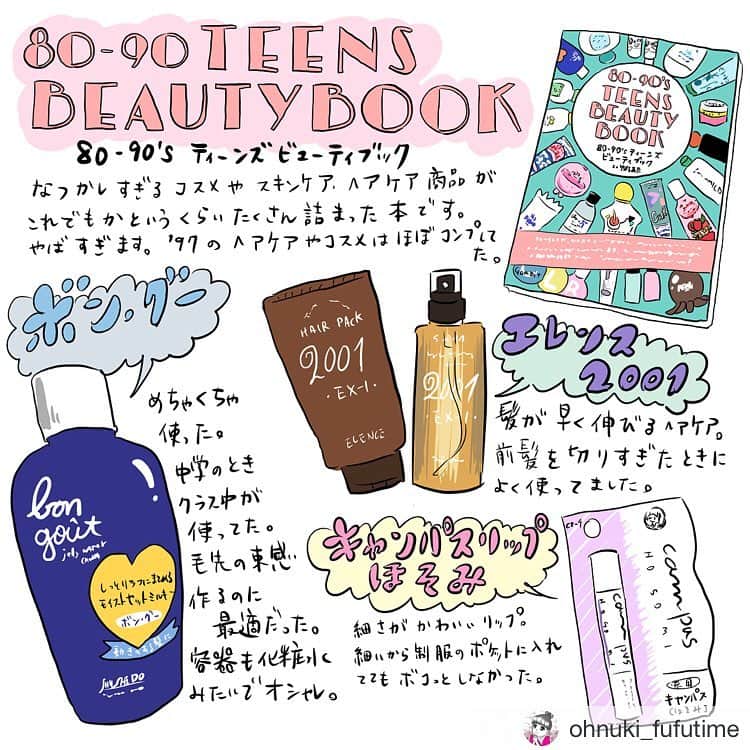 80-90 TEENS
BEAUTYBOOK
80-90's ティーンズビューティブック
なつかしすぎるコスメやスキンケア、ヘアケア商品が
これでもかというくらいたくさん詰まった本です。
やばすぎます。'97のヘアケアやコスメはほぼコンプしてた。
80-90'S
TEENS
BEAUTY
BOOK
80-90'sティーンズ
ビューティブック
ボン・グー
めちゃくちゃ
使った。
中学のとき
クラス中が
使ってた。
毛先の束感
作るのに
最適だった。
容器も化粧水
みたいでオシャレ。
bon
goût
しっとりラフにまとめる
モイストセットミルキー
ボン・グー
SHISEIDO
HAIR PACK
2001
・EX-1・
ELENCE
2001
・EX-1・
エレンス
2001
髪が早く伸びるヘアケア。
前髪を切りすぎたときに
よく使ってました。
キャンパスリップ
ほそみ
細さがかわいいリップ。
細いから制服のポケットに入れ
ててもボコっとしなかった。
campus
HOSOMI
campus
キャンパス
[ほそみ]
ohnuki_fufutime